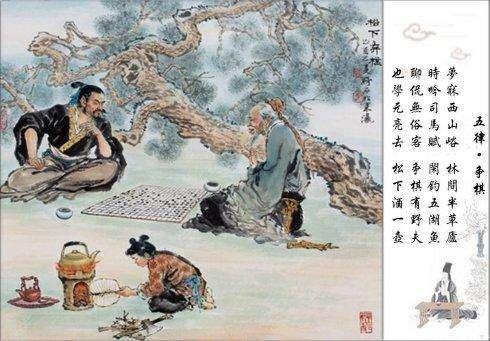 五律·爭棋
夢寐西山峪 林間半草廬
時吟司馬賦 閑釣五湖魚
聊侃無俗客 爭棋有野夫
也學元亮去 松下酒一壺
松下弈棋